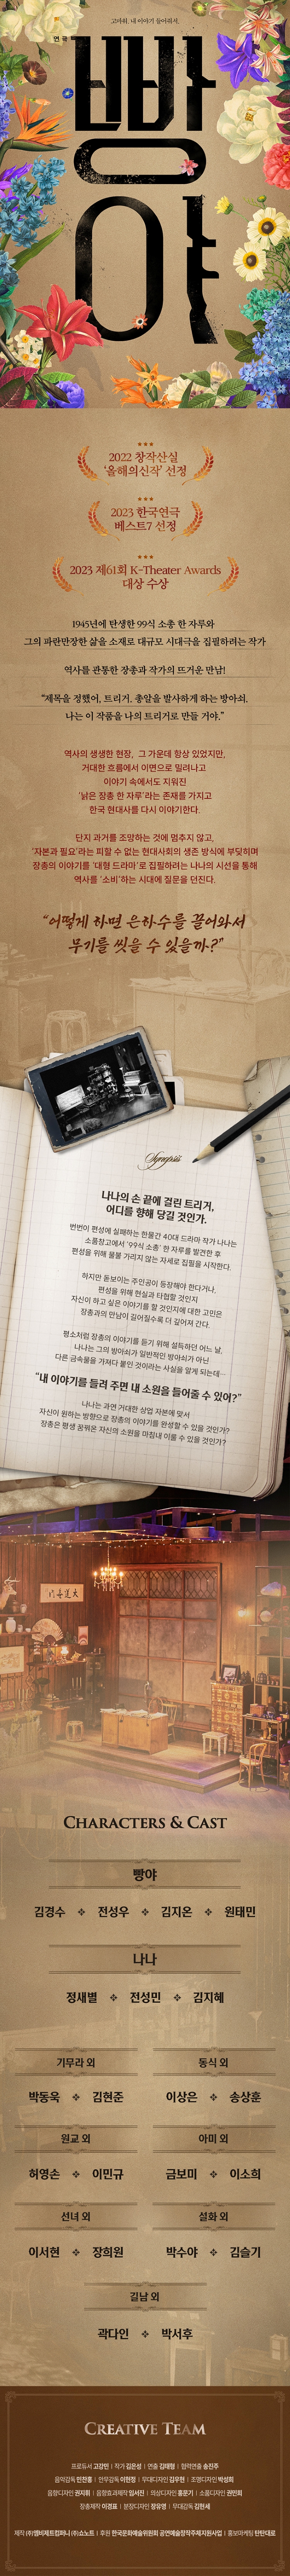 고마워, 내 이야기 들어줘서.
연극
빵야
2022 창작산실
‘올해의신작’ 선정
2023 한국연극
베스트7 선정
2023 제61회 K-Theater Awards
대상 수상
1945년에 탄생한 99식 소총 한 자루와
그의 파란만장한 삶을 소재로 대규모 시대극을 집필하려는 작가
역사를 관통한 장총과 작가의 뜨거운 만남!
“제목을 정했어, 트리거. 총알을 발사하게 하는 방아쇠.
나는 이 작품을 나의 트리거로 만들 거야.”
역사의 생생한 현장, 그 가운데 항상 있었지만,
거대한 흐름에서 이면으로 밀려나고
이야기 속에서도 지워진
‘낡은 장총 한 자루’라는 존재를 가지고
한국 현대사를 다시 이야기한다.
단지 과거를 조망하는 것에 멈추지 않고,
‘자본과 필요’라는 피할 수 없는 현대사회의 생존 방식에 부딪히며
장총의 이야기를 ‘대형 드라마’로 집필하려는 나나의 시선을 통해
역사를 ‘소비’하는 시대에 질문을 던진다.
“어떻게 하면 은하수를 끌어와서
무기를 씻을 수 있을까?”
Synopsis
나나의 손 끝에 걸린 트리거,
어디를 향해 당길 것인가.
번번이 편성에 실패하는 한물간 40대 드라마 작가 나나는
소품창고에서 ‘99식 소총’ 한 자루를 발견한 후
편성을 위해 물불 가리지 않는 자세로 집필을 시작한다.
하지만 돋보이는 주인공이 등장해야 한다거나,
편성을 위해 현실과 타협할 것인지
자신이 하고 싶은 이야기를 할 것인지에 대한 고민은
장총과의 만남이 길어질수록 더 깊어져 간다.
평소처럼 장총의 이야기를 듣기 위해 설득하던 어느 날,
나나는 그의 방아쇠가 일반적인 방아쇠가 아닌
다른 금속물을 가져다 붙인 것이라는 사실을 알게 되는데…
“내 이야기를 들려 주면 내 소원을 들어줄 수 있어?”
나나는 과연 거대한 상업 자본에 맞서
자신이 원하는 방향으로 장총의 이야기를 완성할 수 있을 것인가?
장총은 평생 꿈꿔온 자신의 소원을 마침내 이룰 수 있을 것인가?
CHARACTERS & CAST
빵야
김경수 전성우 김지온 원태민
나나
정새별 전성민 김지혜
기무라 외 동식 외
박동욱 김현준 이상은 송상훈
원교 외 아미 외
허영손 이민규 금보미 이소희
선녀 외 설화 외
이서현 장희원 박수야 김슬기
길남 외
곽다인 박서후
CREATIVE TEAM
프로듀서 고강민 | 작가 김은성 | 연출 김태형 | 협력연출 송진주
음악감독 민찬홍 | 안무감독 이현정 | 무대디자인 김우현 | 조명디자인 박성희
음향디자인 권지휘 | 음향효과제작 임서진 | 의상디자인 홍문기 | 소품디자인 권민희
장총제작 이경표 | 분장디자인 장유영 | 무대감독 김현세
제작 (주)엠비제트컴퍼니 (주)쇼노트 | 후원 한국문화예술위원회 공연예술창작주체지원사업 | 홍보마케팅 탄탄대로